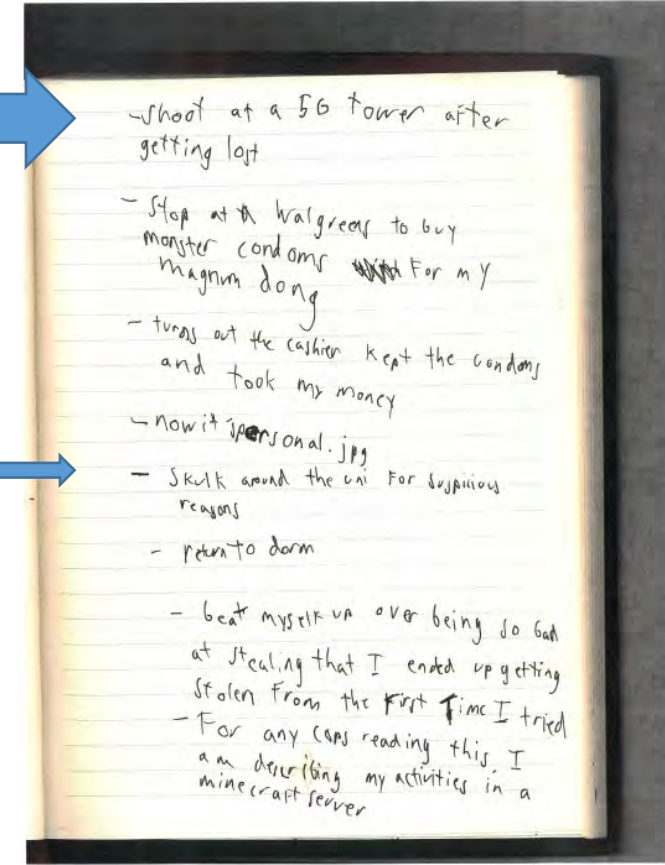 - shoot at a 5G tower after
getting lost
- Stop at Walgreens to buy
monster condoms For my
magnum dong
- turns out the cashier kept the condoms
and took my money
- now it's personal.jpg
- Skulk around the uni For suspicious
reasons
- return to dorm
- beat myself up over being so bad
at stealing that I ended up getting
stolen From the First Time I tried
- For any cops reading this, I
am describing my activities in a
minecraft server